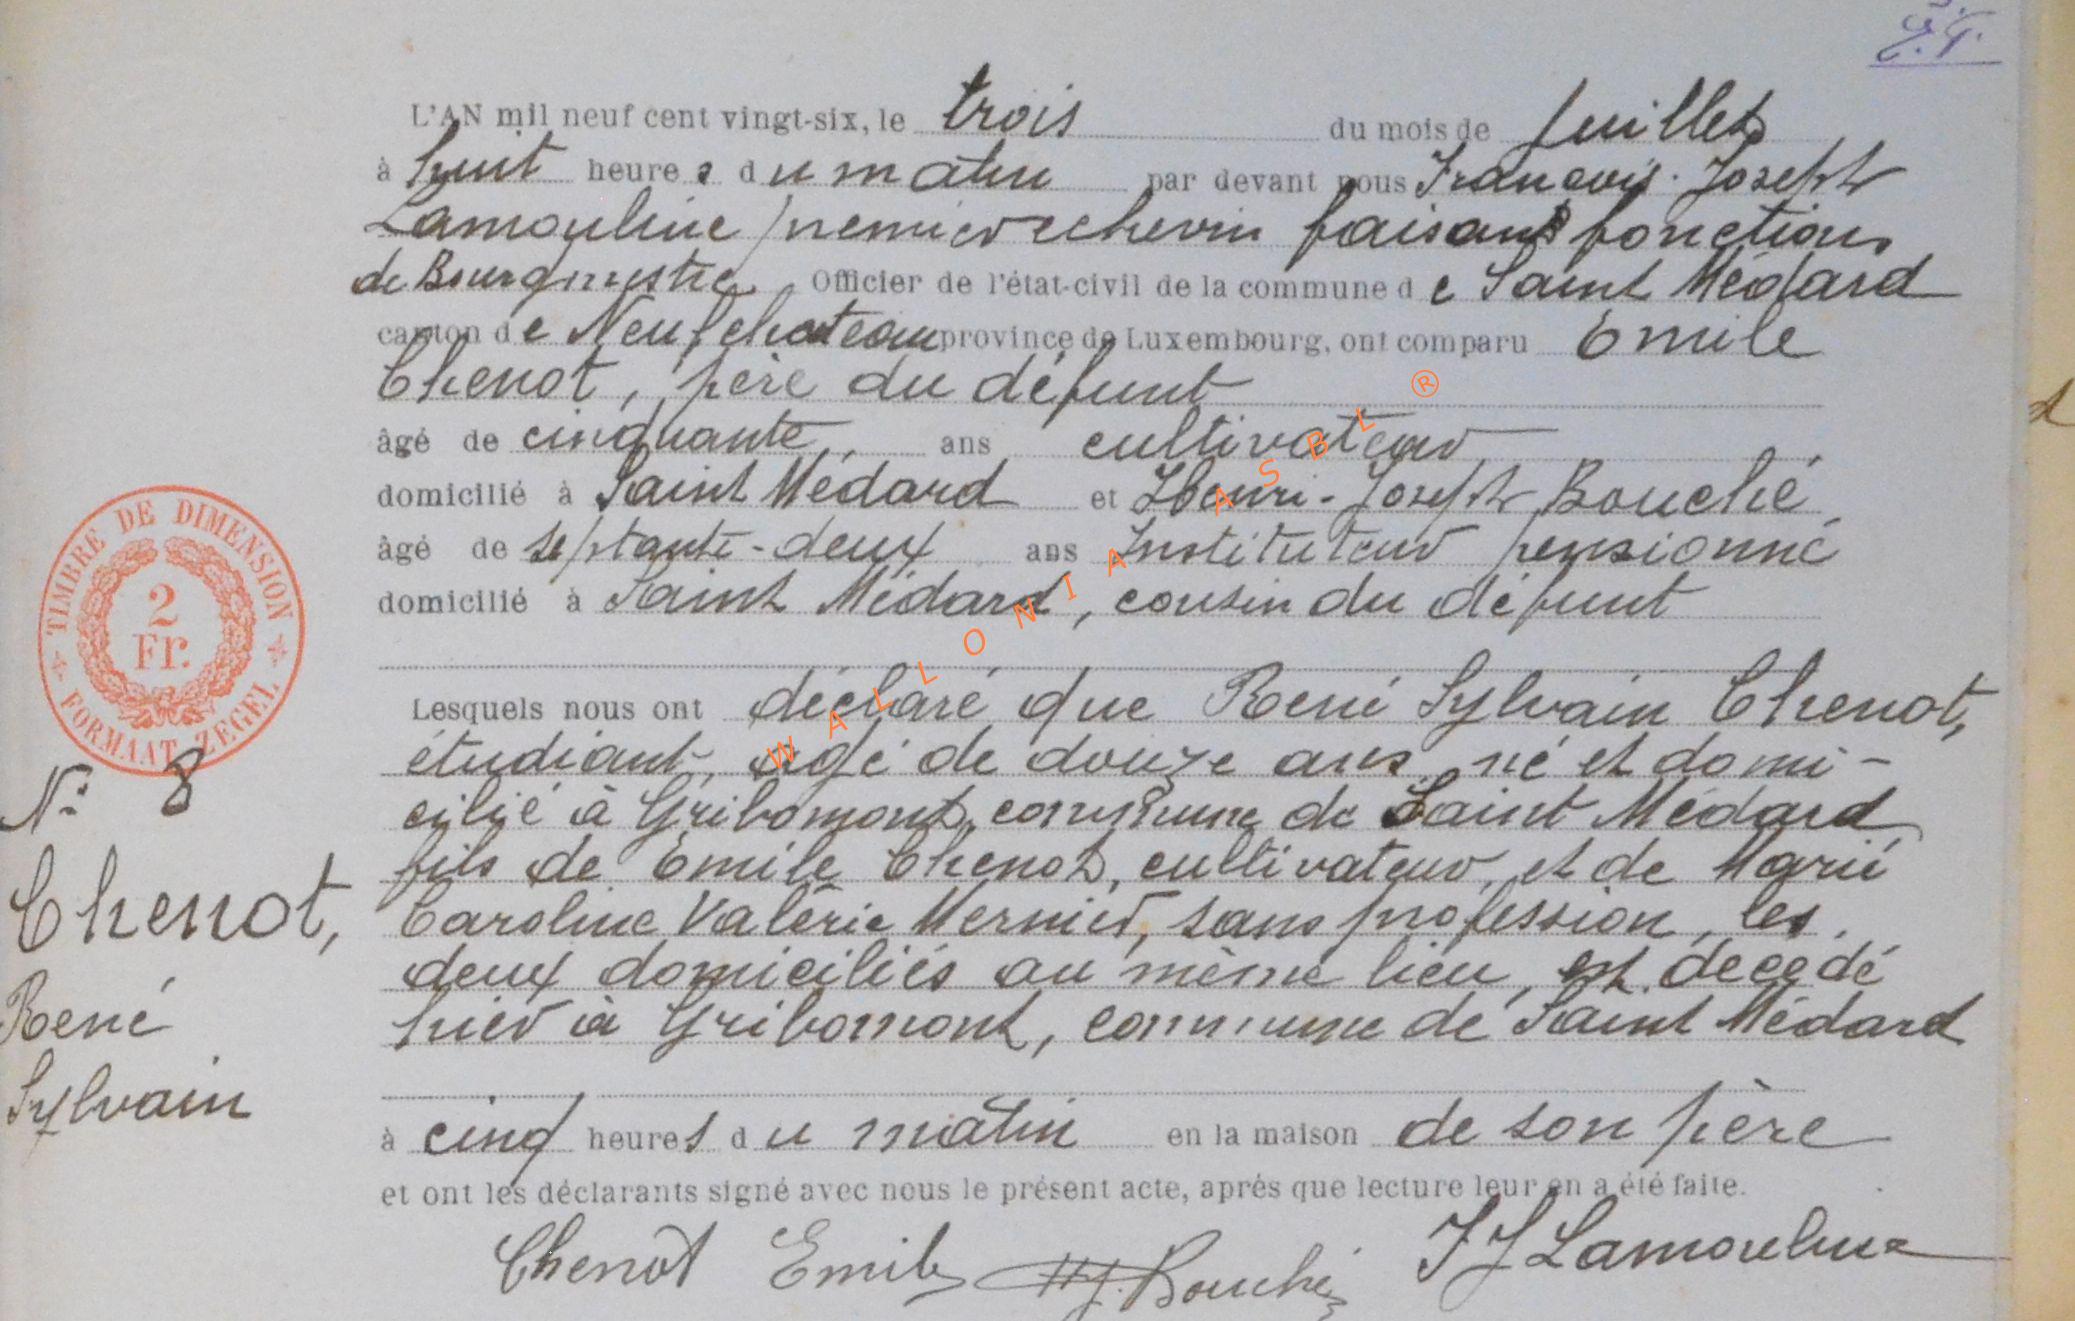 J.G.
L'AN mil neuf cent vingt-six, le trois du mois de Juillet
à huit heures du matin par devant nous François-Joseph
Lamouline premier echevin faisant fonctions
de Bourgmestre Officier de l'état-civil de la commune de Saint Médard
canton de Neufchateau province de Luxembourg, ont comparu Emile
Chenot, père du défunt
âgé de cinquante ans cultivateur
domicilié à Saint Médard et Henri-Joseph Bouché
âgé de septante-deux ans Instituteur pensionné
domicilié à Saint Médard, cousin du défunt
Lesquels nous ont déclaré que René Sylvain Chenot,
étudiant, agé de douze ans, né et domi-
cilié à Gribomont, commune de Saint Médard
fils de Emile Chenot, cultivateur, et de Marie
Caroline Valérie Mernier, sans profession, les
deux domiciliés au même lieu, est decedé
hier à Gribomont, commune de Saint Médard
à cinq heures du matin en la maison de son père
et ont les déclarants signé avec nous le présent acte, après que lecture leur en a été faite.
Chenot Emile HJ. Bouché FJ Lamouline
TIMBRE DE DIMENSION
2
Fr.
FORMAAT ZEGEL
N° 8
Chenot,
René
Sylvain
WALLONIA ASBL ®